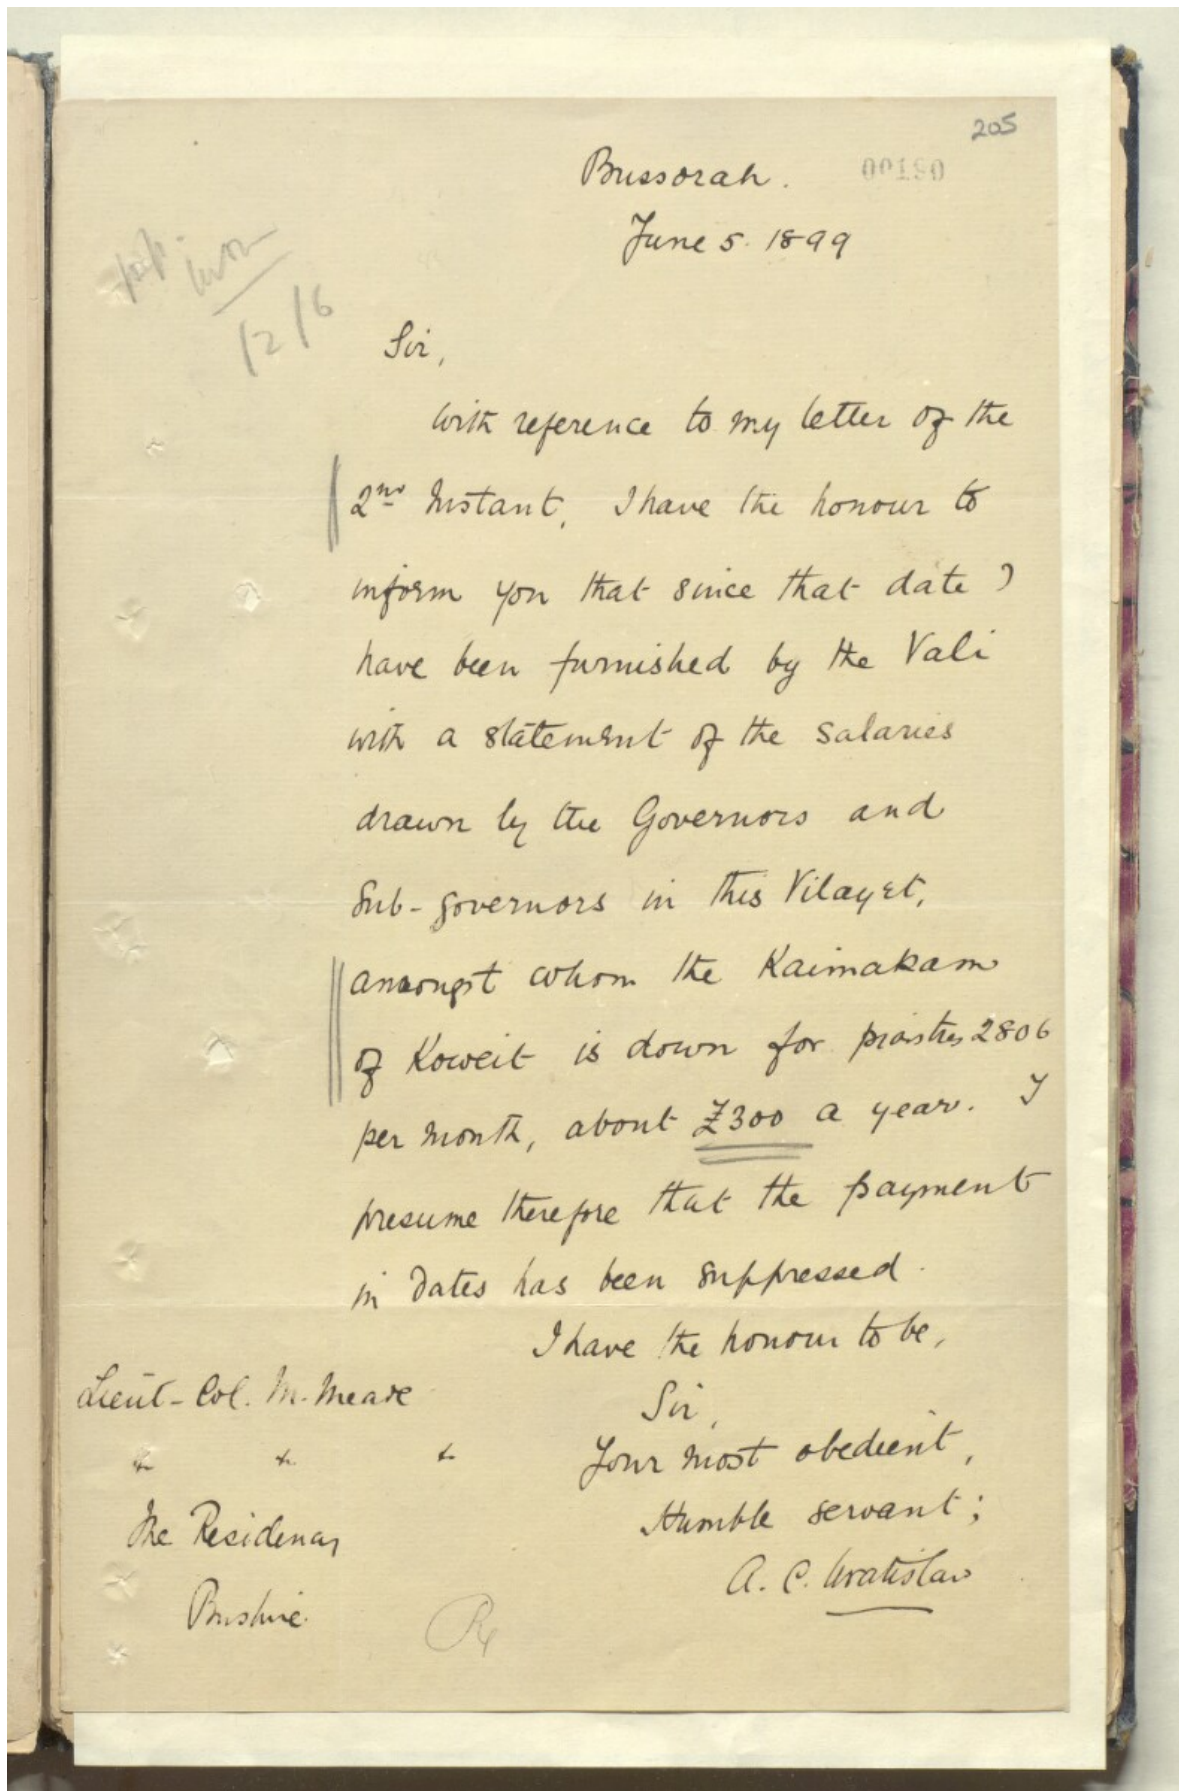 205
00190
Bussorah.
June 5. 1899
12/6
Sir,
With reference to my letter of the
2nd Instant, I have the honour to
inform you that since that date I
have been furnished by the Vali
with a statement of the salaries
drawn by the Governors and
Sub-governors in this Vilayet,
amongst whom the Kaimakam
of Koweit is down for piastres 2806
per month, about £300 a year. I
presume therefore that the payment
in dates has been suppressed.
I have the honour to be,
Sir,
Your most obedient,
Humble servant;
A. C. Wratislaw
Lieut-Col. M. Meade
& & &
The Residency
Bushire.